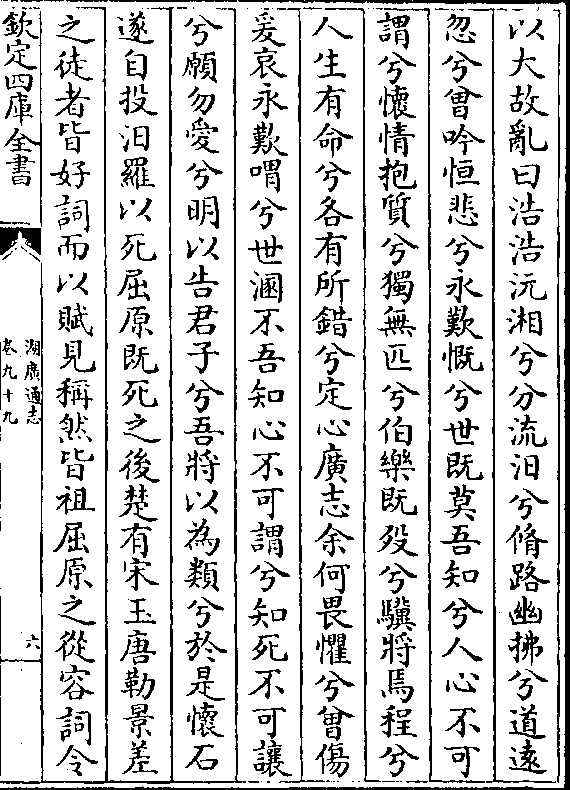 以大故亂曰浩浩沅湘兮分流汨兮脩路幽拂兮道遠
忽兮曾吟恒悲兮永歎慨兮世既莫吾知兮人心不可
謂兮懷情抱質兮獨無匹兮伯樂既歿兮驥將焉程兮
人生有命兮各有所錯兮定心廣志余何畏懼兮曾傷
爰哀永歎喟兮世溷不吾知心不可謂兮知死不可讓
兮願勿愛兮明以告君子兮吾將以為類兮於是懷石
遂自投汨羅以死屈原既死之後楚有宋玉唐勒景差
之徒者皆好詞而以賦見稱然皆祖屈原之從容詞令
欽定四庫全書
湖廣通志
卷九十九
六